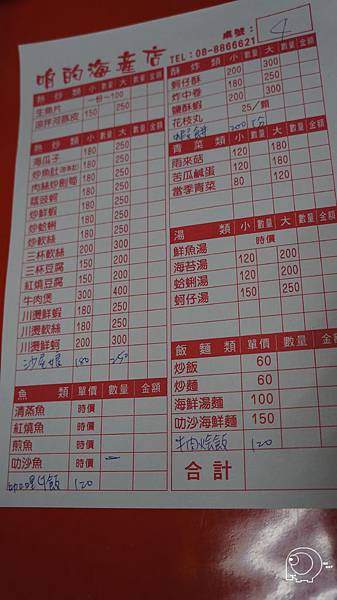 咱的海產店
桌號: 4
TEL:08-8866621
熱炒類 小 數量 大 數量 金額
生魚片 一份~100
涼拌河豚皮 150 250
熱炒類 小 數量 大 數量 金額
海瓜子 180 250
炒魚肚 180 250
肉絲炒劍筍 180 250
蔭豉蚵 180 250
炒鮮蝦 180 250
炒蛤蜊 180 250
炒軟絲 180 250
三杯軟絲 200 300
三杯豆腐 150 200
紅燒豆腐 150 200
牛肉煲 300 400
川燙鮮蝦 180 250
川燙軟絲 180 250
川燙鮮蚵 200 300
180 250
魚類 單價 數量 金額
清蒸魚 時價
紅燒魚 時價
煎魚 時價
叻沙魚 時價
咖哩牛飯 120
酥炸類 小 數量 大 數量 金額
蚵仔酥 200 300
炸中卷 180 250
鹽酥蝦 200 300
花枝丸 25/顆
蝦餅 200
青菜類 小 數量 大 數量 金額
雨來菇 120 180
苦瓜鹹蛋 120 180
當季青菜 80 120
湯 小 數量 大 數量 金額
鮮魚湯 時價
海苔湯 120 200
蛤蜊湯 120 200
蚵仔湯 150 250
飯麵類 單價 數量 金額
炒飯 60
炒麵 60
海鮮湯麵 100
叻沙海鮮麵 150
牛肉燴飯 120
合計